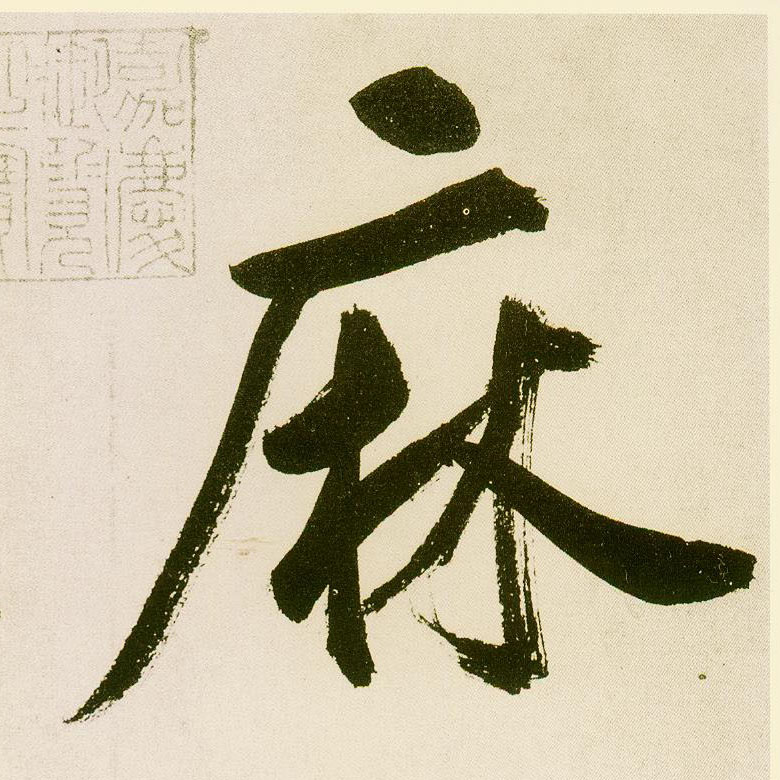 麻
嘉慶
御覽
之寶